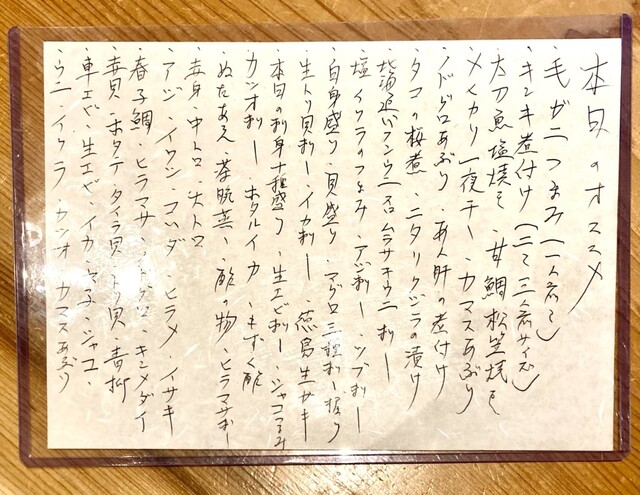 本日のオススメ
・毛ガニつまみ(一人前〜)
・キンキ煮付け(二〜三人前サイズ)
・太刀魚塩焼き ・甘鯛松笠焼き
・メヒカリ一夜干 ・カマスあぶり
・ノドグロあぶり ・あん肝の煮付け
・タコの桜煮 ・ニタリクジラの漬け
・北海道バフンウニ ムラサキウニ 刺
・塩イクラのつまみ ・アジ刺 ・ツブ刺
・白身盛り ・貝盛り ・マグロ三種刺
・生トリ貝刺 ・イカ刺 ・徳島生サキ
・本日の刺身十種盛り ・生エビ刺 ・シャコつまみ
・カツオ刺 ・ホタルイカ ・もずく酢
・ぬたあえ ・茶碗蒸 ・酢の物 ・ヒラマサ刺
・赤身 ・中トロ ・大トロ
・アジ ・イワシ ・コハダ ・ヒラメ ・イサキ
・春子鯛 ・ヒラマサ ・ノドグロ ・キンメダイ
・赤貝 ・ホタテ ・タイラ貝 ・トリ貝 ・青柳
・車エビ ・生エビ ・イカ ・タコ ・シャコ
・ウニ ・イクラ ・カツオ ・カマスあぶり